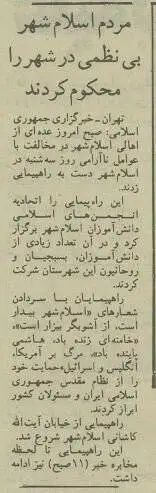 مردم اسلام شهر
بی نظمی در شهر را
محکوم کردند
تهران ـ خبرگزاری جمهوری
اسلامی: صبح امروز عده‌ای از
اهالی اسلام شهر در مخالفت با
عوامل ناآرامی روز سه‌شنبه در
اسلام شهر دست به راهپیمایی
زدند.
این راه‌پیمایی را اتحادیه
انجمن‌های اسلامی
دانش‌آموزان اسلام‌شهر برگزار
کرد و در آن تعداد زیادی از
دانش‌آموزان، بسیجیان و
روحانیون این شهرستان شرکت
کردند.
راهپیمایان با سردادن
شعارهای «اسلام‌شهر بیدار
است، از آشوبگر بیزار است»،
«خامنه‌ای زنده باد، هاشمی
پاینده باد»، مرگ بر آمریکا،
انگلیس و اسرائیل» حمایت خود
را از نظام مقدس جمهوری
اسلامی ایران و مسئولان کشور
ابراز کردند.
راهپیمایی از خیابان آیت‌الله
کاشانی اسلام‌شهر شروع شد.
راهپیمایی تا لحظه
مخابره خبر (۱۱صبح) نیز ادامه
داشت.